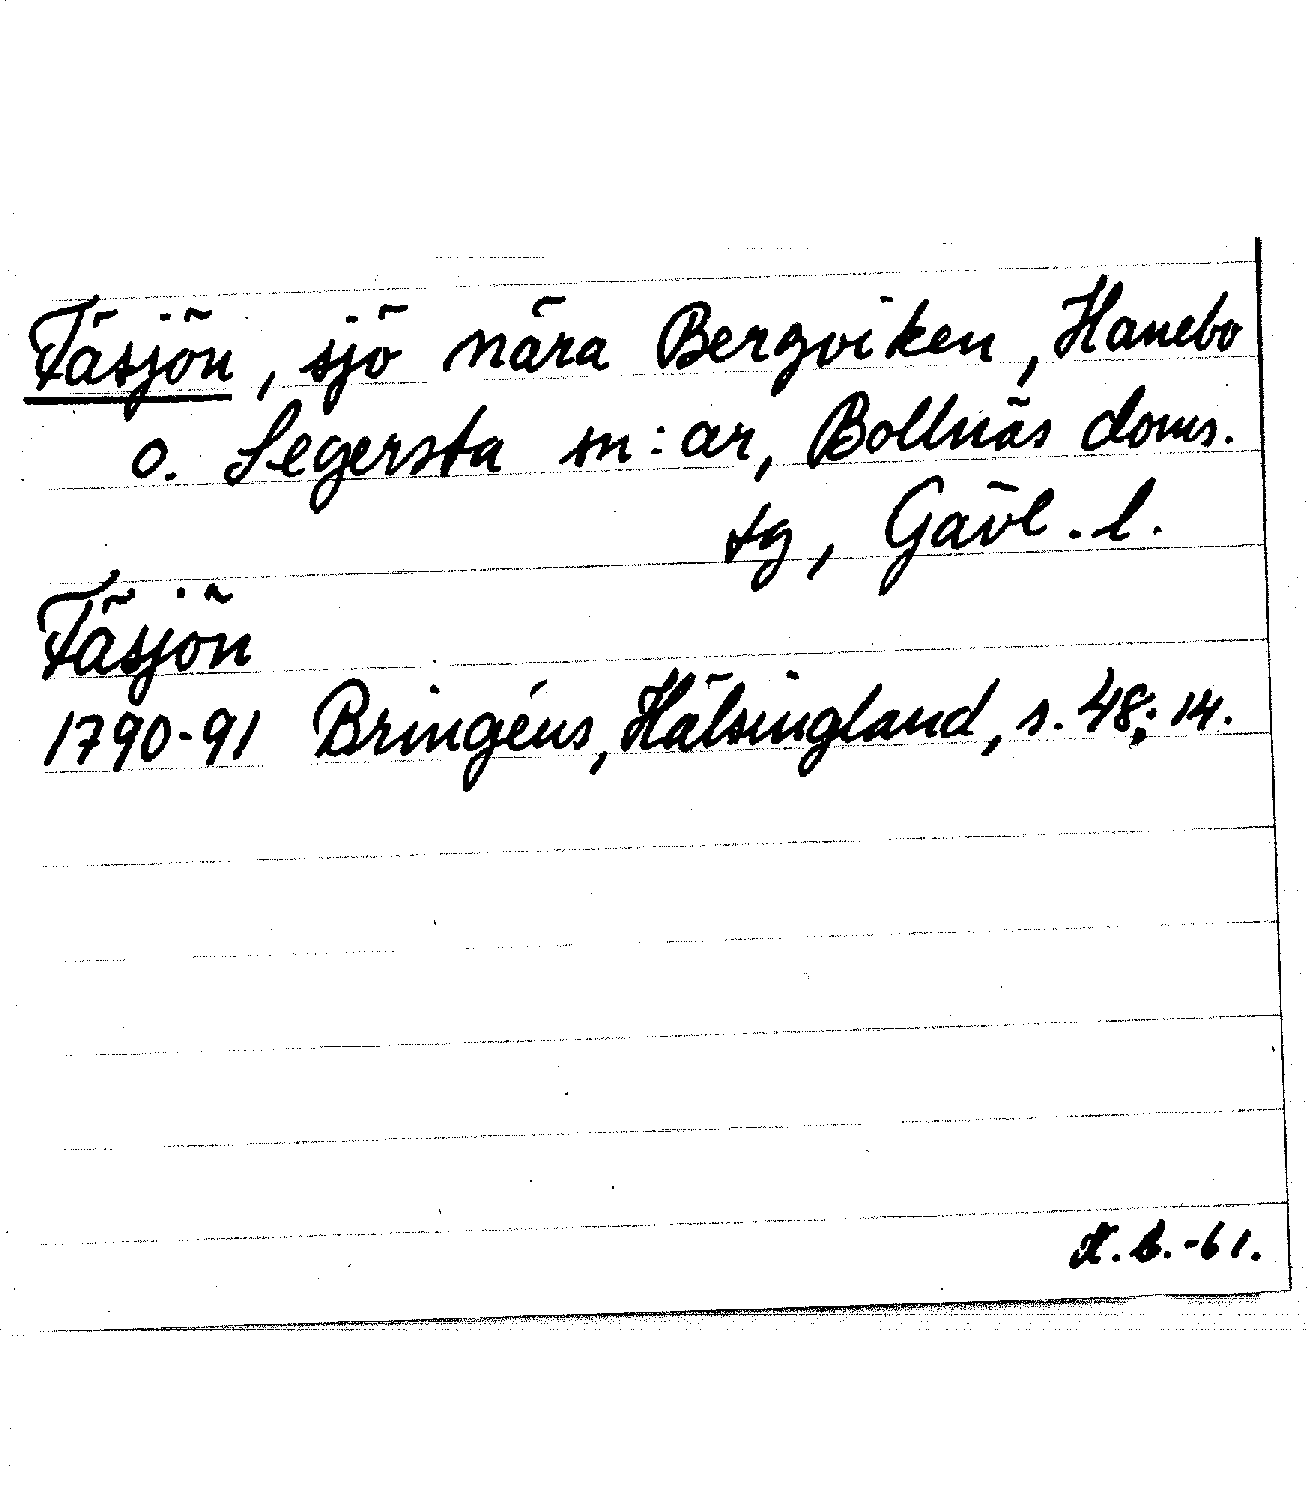 Täsjön, sjö nära Bergviken, Hanebo
o. Segersta sn:ar, Bollnäs doms.
tg, Gävl. l.
Täsjön
1790-91 Bringéus, Hälsingland, s. 48; 14.
-61.